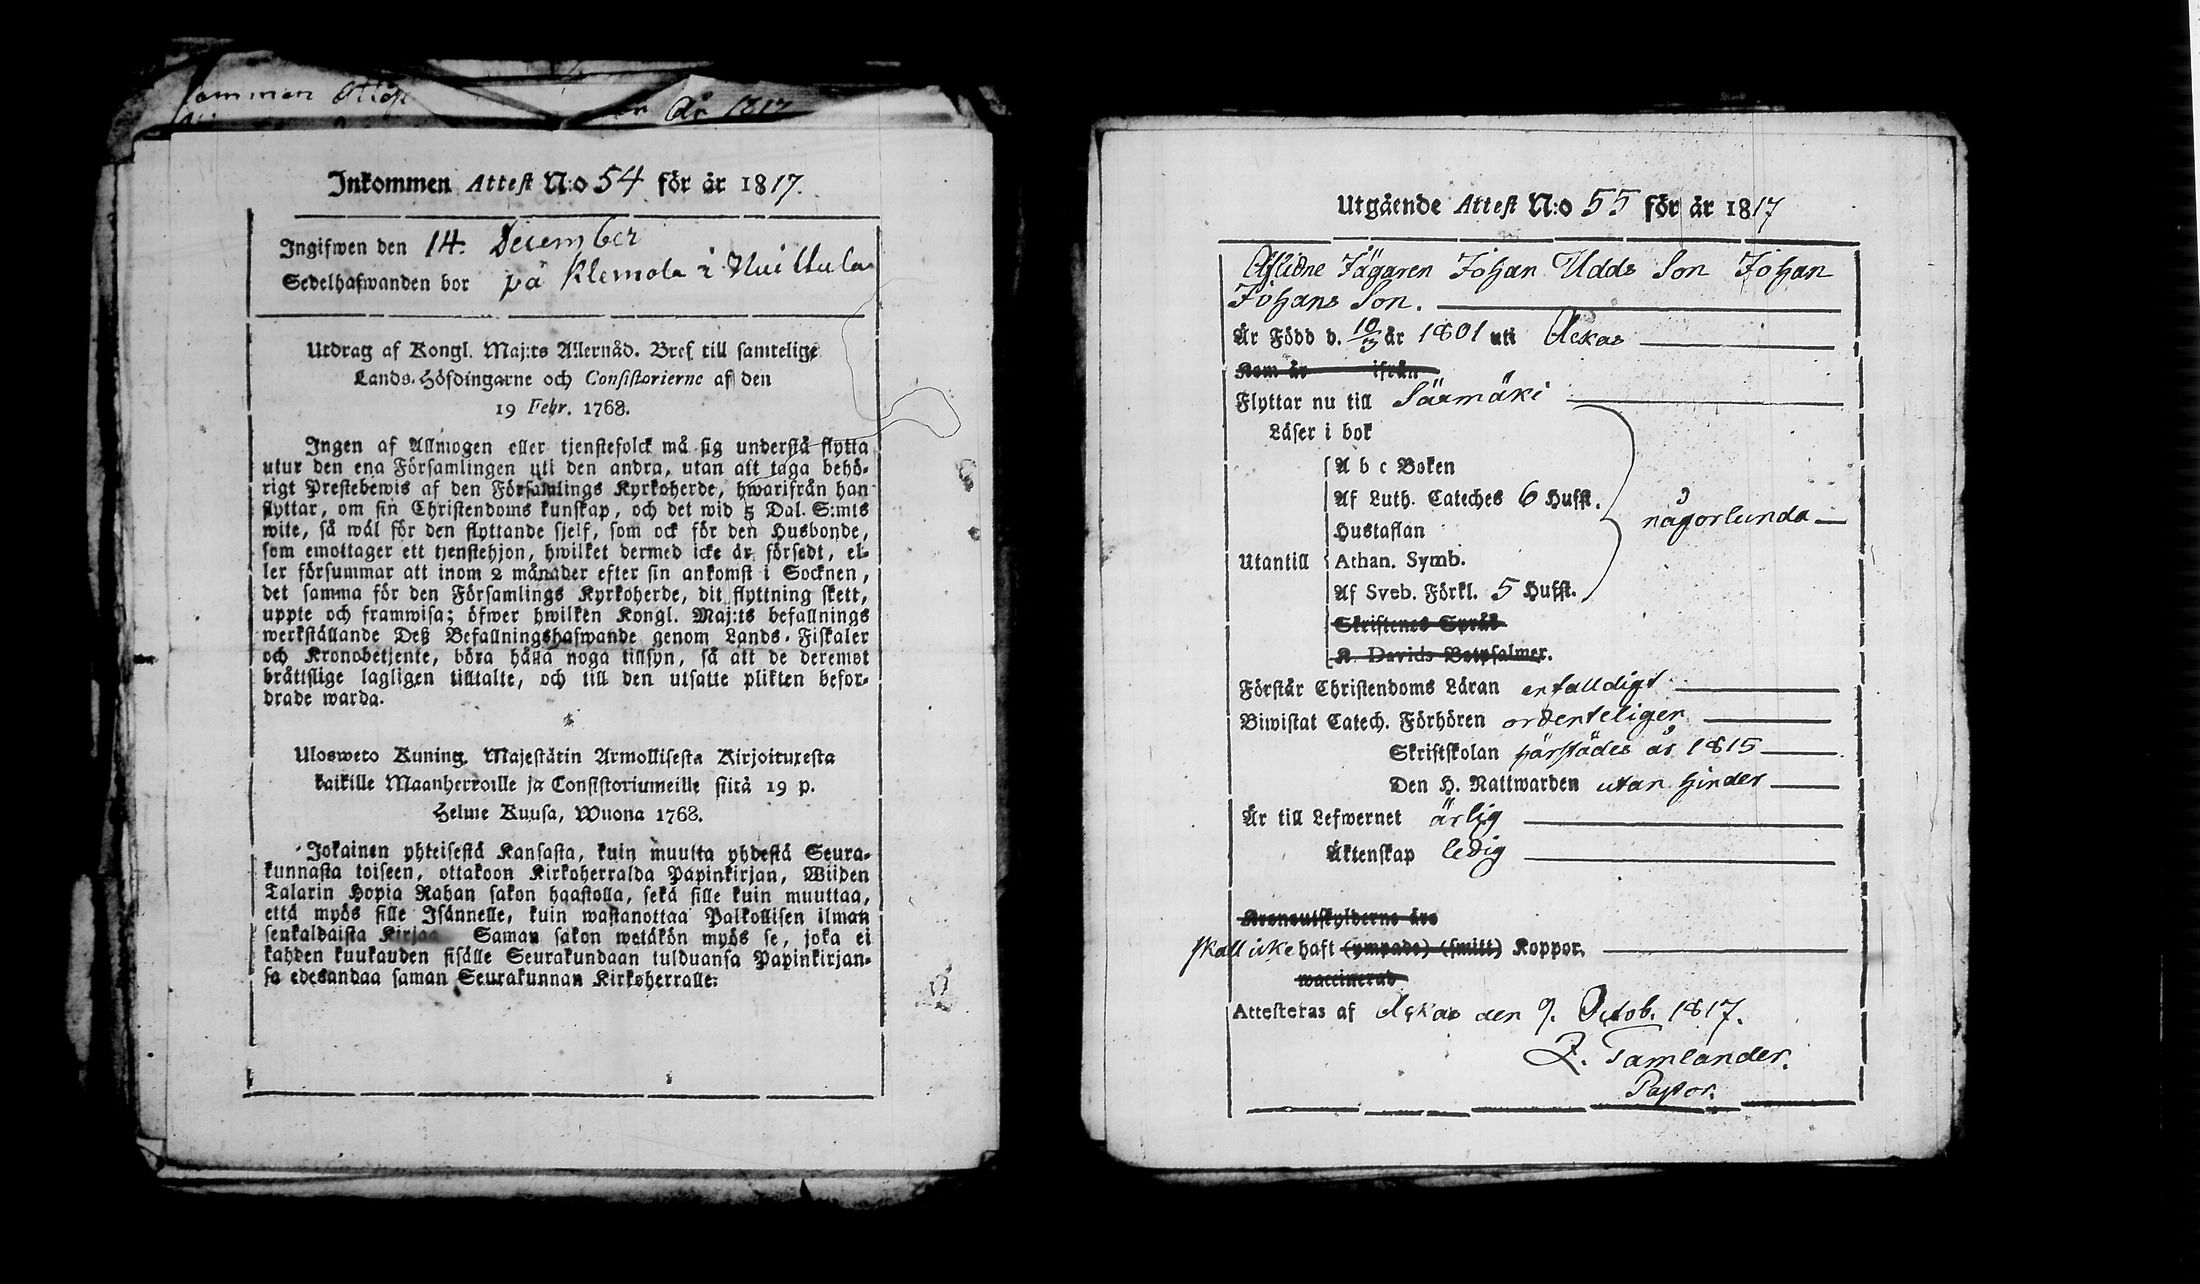 ommen Attest
År 1817
Inkommen Attest N:o 54 för år 1817.
Ingifwen den 14. December
Sedelhafwanden bor på Klemola i Huittula
Utdrag af Kongl. Maj:ts Allernåd. Bref till samtelige
Lands-Höfdingarne och Consistorierne af den
19 Febr. 1768.
Ingen af Allmogen eller tjenstefolck må sig understå flytta
utur den ena Församlingen uti den andra, utan att taga behö-
rigt Prestebewis af den Församlings Kyrkoherde, hwarifrån han
flyttar, om sin Christendoms kunskap, och det wid 5 Dal. S:mts
wite, så wäl för den flyttande sjelf, som ock för den Husbonde,
som emottager ett tjenstehjon, hwilket dermed icke är försedt, el-
ler försummar att inom 2 månader efter sin ankomst i Socknen,
det samma för den Församlings Kyrkoherde, dit flyttning skett,
uppte och framwisa; öfwer hwilken Kongl. Maj:ts befallnings
werkställande Deß Befallningshafwande genom Lands-Fiskaler
och Kronobetjente, böra hålla noga tillsyn, så att de deremot
bråttslige lagligen tilltalte, och till den utsatte plikten befor-
drade warda.
Ulosweto Kuning. Majestätin Armollisesta Kirjoituxesta
kaikille Maanherroille ja Consistoriumeille siitä 19 p.
Helme Kuusa, Wuona 1768.
Jokainen yhteisestä Kansasta, kuin muutta yhdestä Seura-
kunnasta toiseen, ottakoon Kirkoherralda Papinkirjan, Wiiden
Talarin Hopia Rahan sakon haastolla, sekä sille kuin muuttaa,
että myös sille Isännelle, kuin wastanottaa Palkollisen ilman
senkaldaista Kirjaa. Saman sakon wetäkön myös se, joka ei
kahden kuukauden sisälle Seurakundaan tulduansa Papinkirjan-
sa edesandaa saman Seurakunnan Kirkoherralle:
Utgående Attest N:o 55 för år 1817
Aflidne Jägaren Johan Udds Son Johan
Johans Son.
Är Född d. 10/3 år 1801 uti Ackas
Kom år ifrån
Flyttar nu till Säxmäki
Läser i bok
A b c Boken
Af Luth. Cateches 6 Hufst.
Hustaflan
någorlunda
Utantill Athan. Symb.
Af Sveb. Förkl. 5 Hufst.
Skriftenes Språk
K. Davids Botpsalmer.
Förstår Christendoms Läran enfalldigt
Biwistat Catech. Förhören ordenteligen
Skriftskolan härstädes år 1815
Den H. Nattwarden utan hinder
Är till Lefwernet ärlig
Äktenskap ledig
Kronoutskylderne äro
skall icke haft (ympade) (smitt) Koppor.
waccinerad
Attesteras af Ackas den 9. Octob. 1817.
Z. Tamlander.
Pastor.